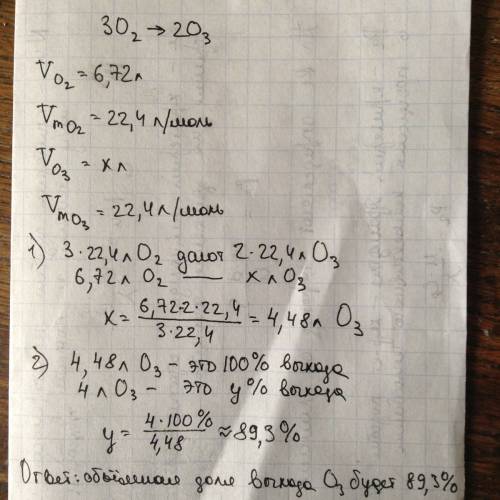 3O₂ → 2O₃
V_O₂ = 6,72 л
V_mO₂ = 22,4 л/моль
V_O₃ = x л
V_mO₃ = 22,4 л/моль
1) 3·22,4 л O₂ дают 2·22,4 л O₃
6,72 л O₂ — x л O₃
x = 6,72·2·22,4 / 3·22,4 = 4,48 л O₃
2) 4,48 л O₃ – это 100% выхода
4 л O₃ – это y % выхода
y = 4·100% / 4,48 ≈ 89,3%
Ответ: объёмная доля выхода O₃ будет 89,3%